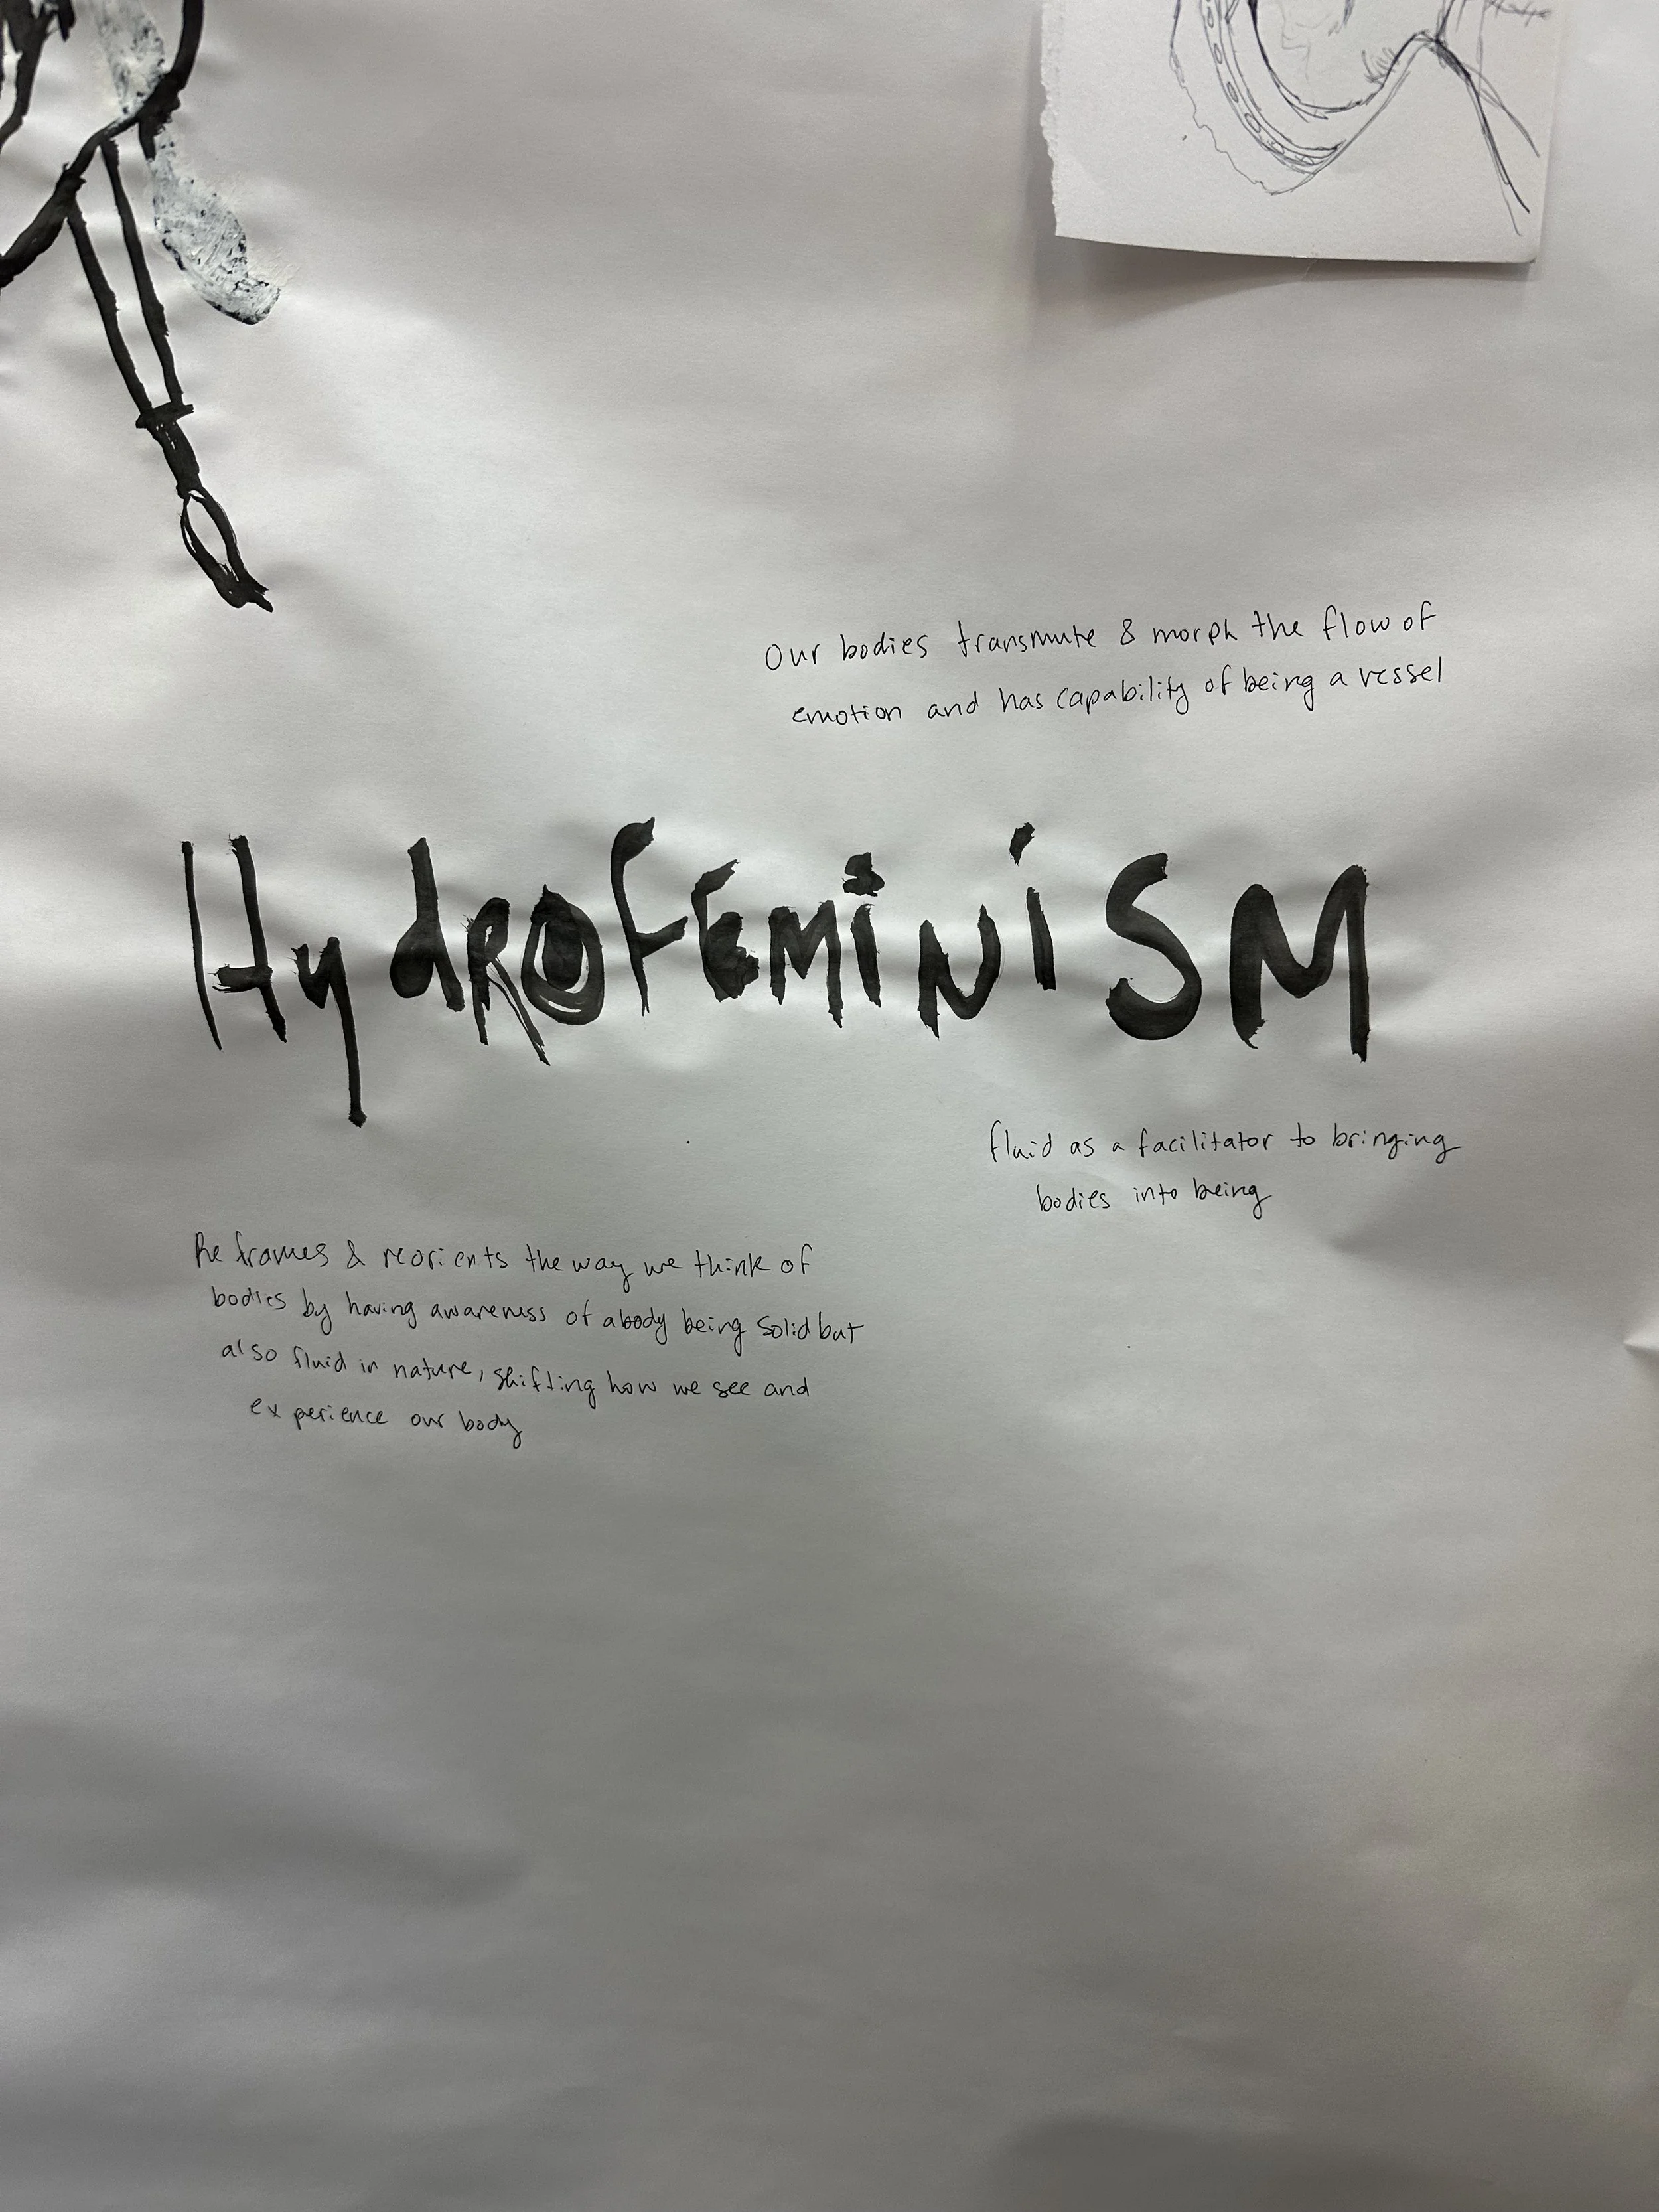 Our bodies transmute & morph the flow of
emotion and has capability of being a vessel
HydROfEMiNiSM
fluid as a facilitator to bringing
bodies into being
Re frames & reorients the way we think of
bodies by having awareness of a body being solid but
also fluid in nature, shifting how we see and
experience our body